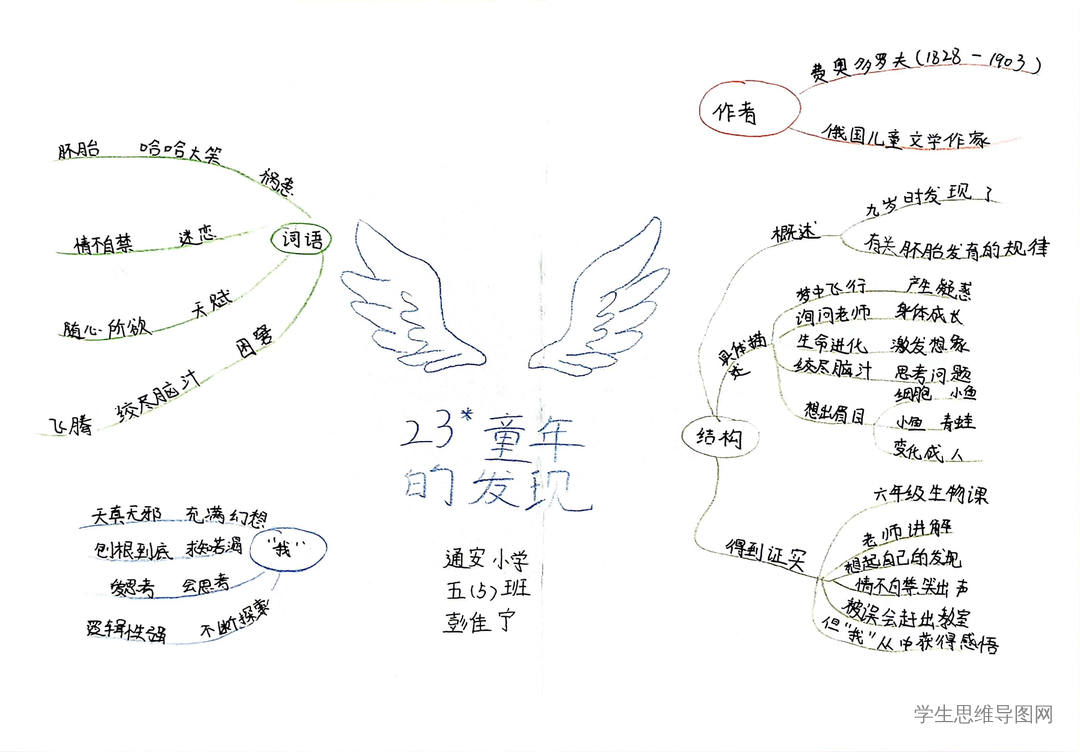 23*童年
的发现
通安小学
五(5)班
彭佳宁
作者
费奥多罗夫(1828-1903)
俄国儿童文学作家
词语
胚胎 哈哈大笑 祸患
情不自禁 迷恋
随心所欲 天赋
飞腾 绞尽脑汁 困窘
"我"
天真无邪 充满幻想
刨根到底 求知若渴
爱思考 会思考
逻辑性强 不断探索
结构
概述
九岁时发现了
有关胚胎发育的规律
具体描述
梦中飞行 产生疑惑
询问老师 身体成长
生命进化 激发想象
绞尽脑汁 思考问题
想出眉目
细胞 小鱼
小鱼 青蛙
变化成人
得到证实
六年级生物课
老师讲解
想起自己的发现
情不自禁笑出声
被误会赶出教室
但"我"从中获得感悟
学生思维导图网